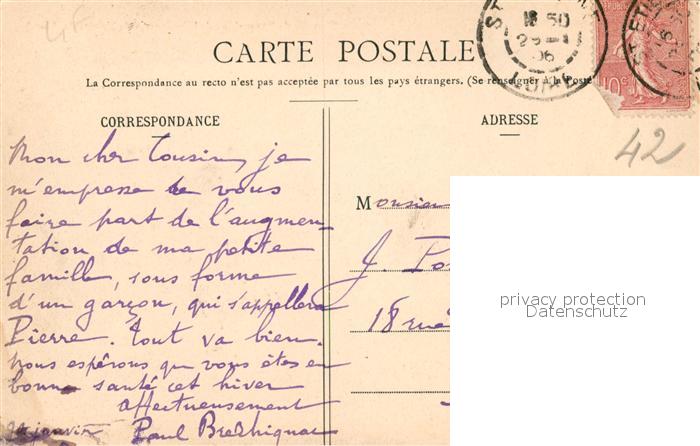 CARTE POSTALE
La Correspondance au recto n'est pas acceptée par tous les pays étrangers. (Se renseigner à la Poste
CORRESPONDANCE
Mon cher Cousin, je
m'empresse de vous
faire part de l'augmen-
tation de ma petite
famille, sous forme
d'un garçon, qui s'appellera
Pierre. Tout va bien.
Nous espérons que vous êtes en
bonne santé cet hiver
affectueusement
24 janvier Paul
ADRESSE
42
Monsieur
J.
18 rue
privacy protection
Datenschutz
10c
LOIRE
06